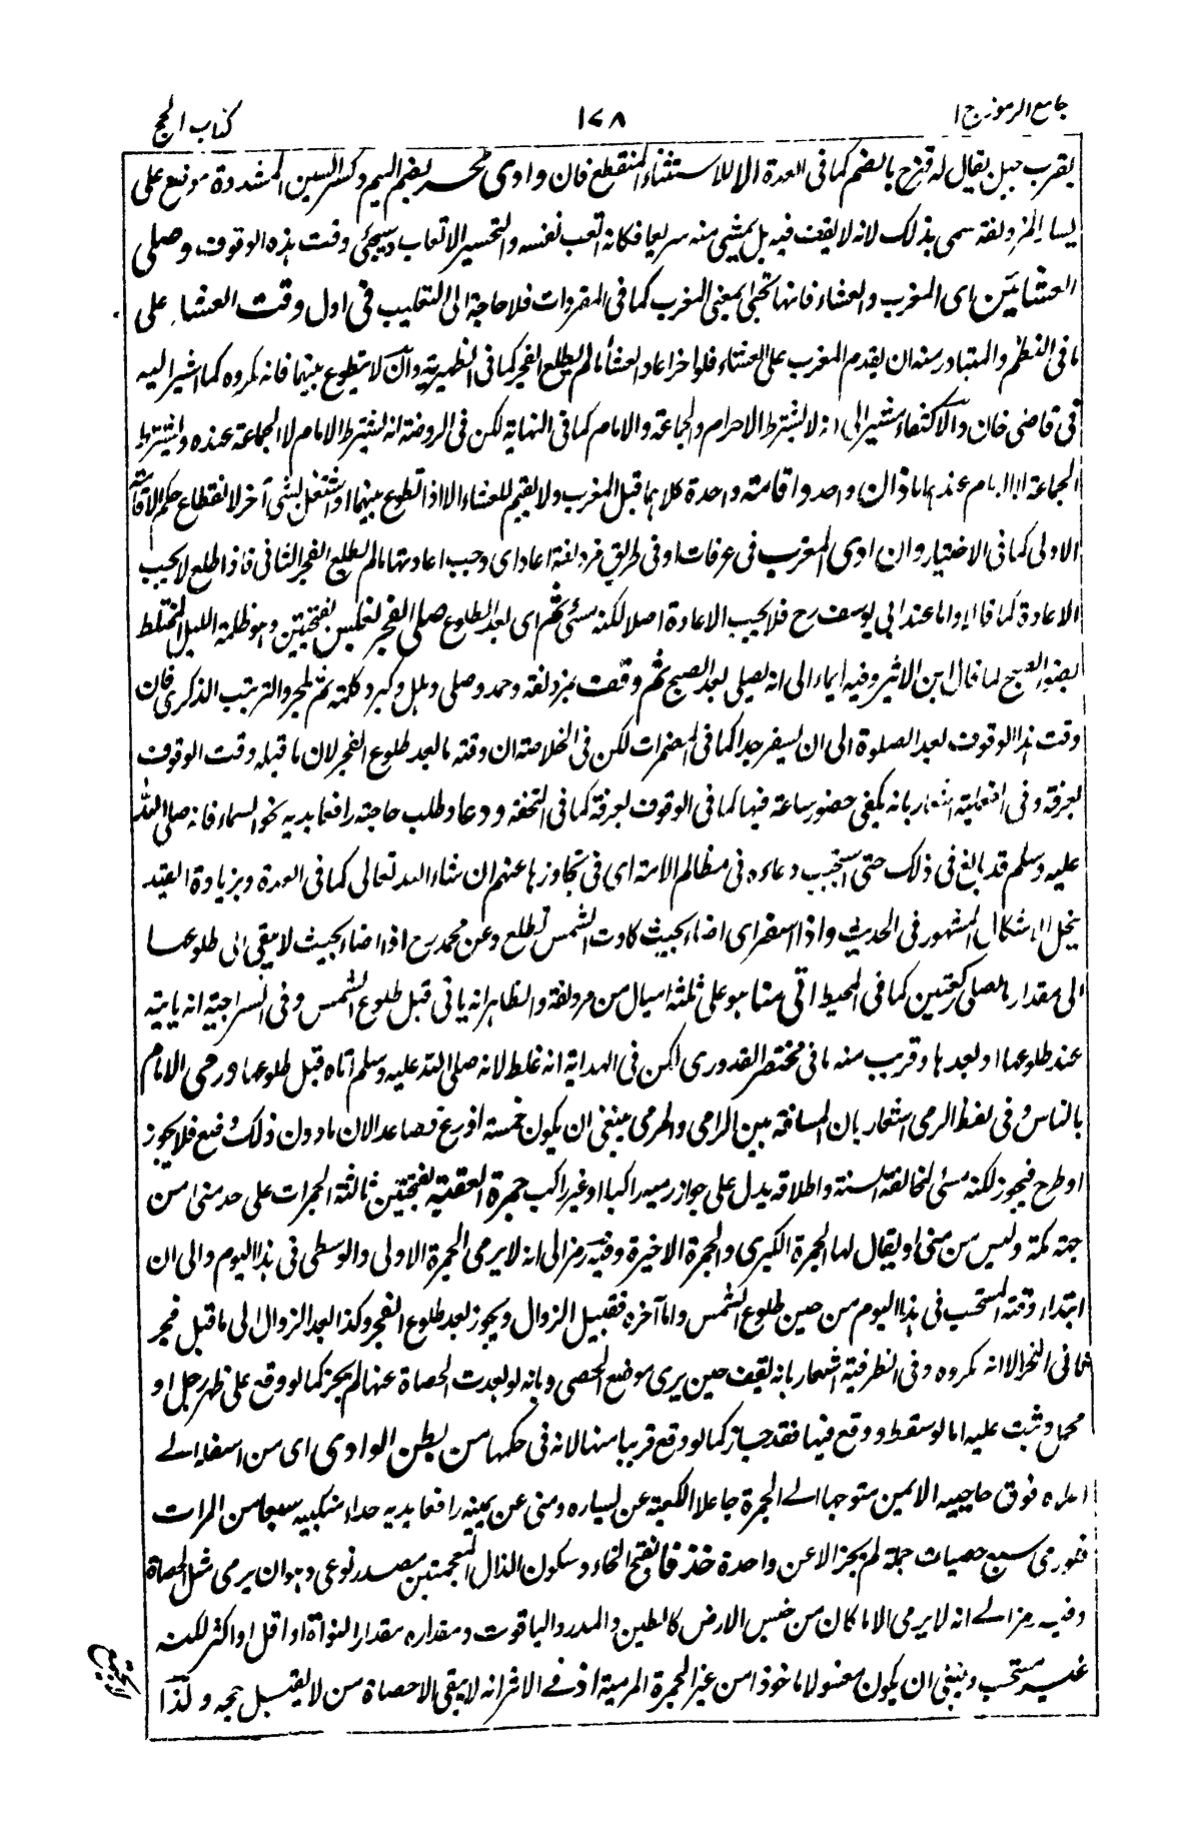 جامع الرموز ج ١
١٧٨
كتاب الحج
بقرب جبل يقال له قزح بالضم كما في العمدة الا للاستثناء المنقطع فان وادى محسر بضم الميم وكسر السين المشددة موضع على
يسار المزدلفة سمى بذلك لانه لا يقف فيه بل يمشى منه سريعا فكانه اتعب نفسه والتحسير الاتعاب وسيجئ وقت هذه الوقوف وصلى
العشائين اى المغرب والعشاء فانها تجئ بمعنى المغرب كما في المفردات فلا حاجة الى التغليب في اول وقت العشاء على
ما في النظم والمتبادر منه ان يقدم المغرب على العشاء فلو اخر اعاد العشأ ما لم يطلع الفجر كما في الظهيرية وان لا يتطوع بينهما فانه مكروه كما اشير اليه
في قاضى خان والاكتفاء مشير الى انه لا يشترط الاحرام والجماعة والامام كما في النهاية لكن في الروضة انه يشترط الامام لا الجماعة عنده ويشترط
الجماعة لا الامام عندهما باذان واحد واقامة واحدة كلاهما قبل المغرب ولا يقيم للعشاء الا اذا تطوع بينهما او اشتغل بشئ آخر لانقطاع حكم الاقامة
الاولى كما في الاختيار وان ادى المغرب في عرفات او في طريق مزدلفة اعاد اى وجب اعادتها ما لم يطلع الفجر الثانى فاذا طلع لا يجب
الاعادة كما قالا واما عند ابى يوسف رح فلا يجب الاعادة اصلا لكنه مسئ ثم اى بعد الطلوع صلى الفجر بغلس بفتحتين وهو ظلمة الليل المختلط
بضوء الصبح كما قال ابن الاثير وفيه ايماء الى انه يصلى بعد الصبح ثم وقف بمزدلفة وحمد وصلى وهلل وكبر وكلمة ثم لمجرد الترتيب الذكرى فان
وقت هذا الوقوف بعد الصلوة الى ان يسفر جدا كما في المضمرات لكن في الخلاصة ان وقته ما بعد طلوع الفجر لان ما قبله وقت الوقوف
بعرفة وفى الفعلية اشعار بانه يكفى حضور ساعة فيها كما في الوقوف بعرفة كما في التحفة ودعا وطلب حاجته رافعا يديه نحو السماء فانه صلى الله
عليه وسلم قد بالغ في ذلك حتى استجيب دعاءه في مظالم الامة اى في تجاوزها عنهم ان شاء الله تعالى كما في العمدة وبزيادة القيد
ينحل الاشكال المشهور في الحديث واذا اسفر اى اضاء بحيث كادت الشمس تطلع وعن محمد رح اذا اضاء بحيث لا يبقى الى طلوعها
الى مقدار ما يصلى ركعتين كما في المحيط اتى منا هو على ثلثة اميال من مزدلفة والظاهر انه ياتى قبل طلوع الشمس وفى السراجية انه ياتيه
عند طلوعها او بعدها وقريب منه ما في مختصر القدورى لكن في الهداية انه غلط لانه صلى الله عليه وسلم اتاه قبل طلوعها ورمى الامام
بالناس وفى لفظ الرمى اشعار بان المسافة بين الرامى والمرمى ينبغى ان يكون خمسة اذرع فصاعدا لان ما دون ذلك وضع فلا يجوز
او طرح فيجوز لكنه مسئ لمخالفة السنة واطلاقه يدل على جواز رميه راكبا او غير راكب جمرة العقبة بفتحتين ثالثة الجمرات على حد منى من
جهة مكة وليس من منى ويقال لها الجمرة الكبرى والجمرة الاخيرة وفيه رمز الى انه لا يرمى الجمرة الاولى والوسطى في هذا اليوم والى ان
ابتداء وقته المستحب في هذا اليوم من حين طلوع الشمس واما آخره فقبيل الزوال ويجوز بعد طلوع الفجر وكذا بعد الزوال الى ما قبل فجر
ثانى النحر الا انه مكروه وفى الظرفية اشعار بانه يقف حين يرى موضع الحصى وبانه لو بعدت الحصاة عنها لم يجز كما لو وقع على ظهر رجل او
محمل وثبت عليه اما لو سقط ووقع فيها فقد جاز كما لو وقع قريبا منها لانه في حكمها من بطن الوادى اى من اسفله الى
اعلاه فوق حاجبيه الايمن متوجها الى الجمرة جاعلا الكعبة عن يساره ومنى عن يمينه رافعا يديه حذاء منكبيه سبعا من المرات
فلو رمى سبع حصيات جملة لم يجز الا عن واحدة خذفا بفتح الخاء وسكون الذال المعجمتين مصدر نوعى وهو ان يرمى مثل الحصاة
وفيه رمز الى انه لا يرمى الا ما كان من جنس الارض كالطين والمدر والياقوت ومقداره مقدار النواة او اقل او اكثر لكنه
غير مستحب وينبغى ان يكون مغسولا ماخوذا من غير الجمرة المرمية اذ في الاثر انه لا يبقى الا حصاة من لا يقبل حجه ولذا